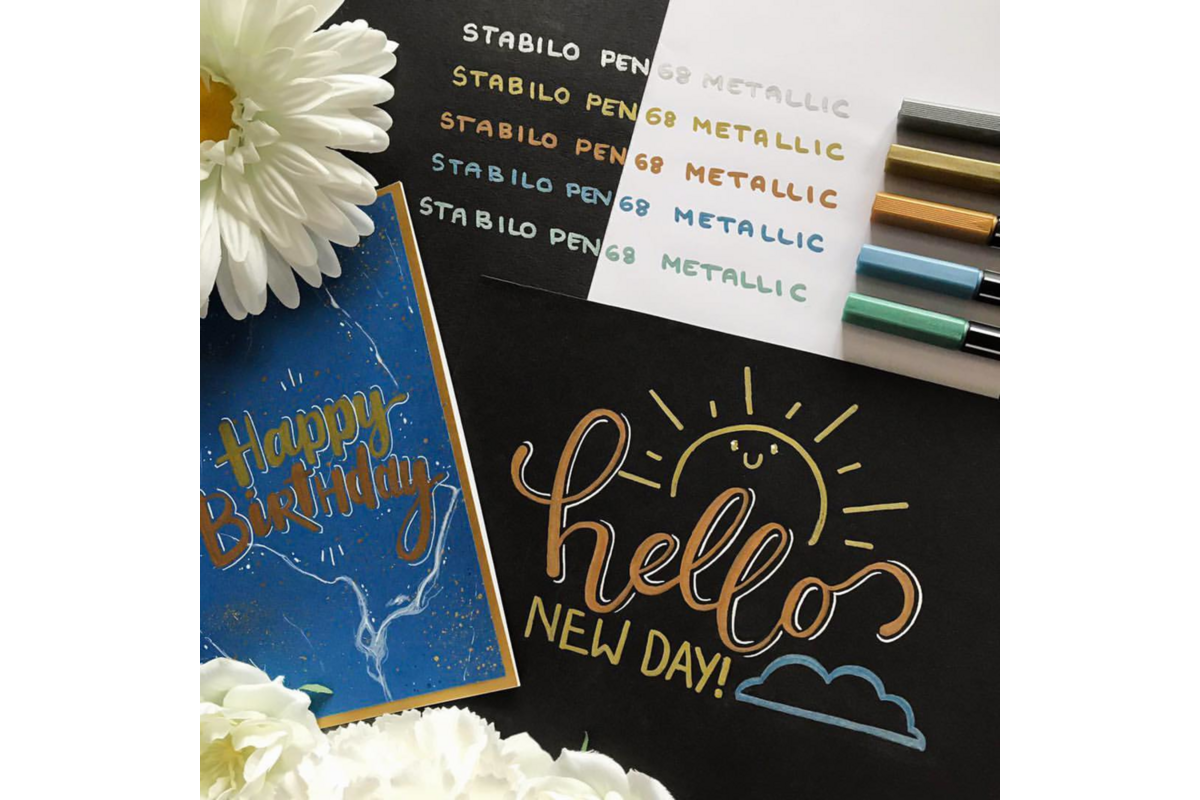 STABILO PEN 68 METALLIC
STABILO PEN 68 METALLIC
STABILO PEN 68 METALLIC
STABILO PEN 68 METALLIC
STABILO PEN 68 METALLIC
Happy
BirtHday
hello
NEW DAY!